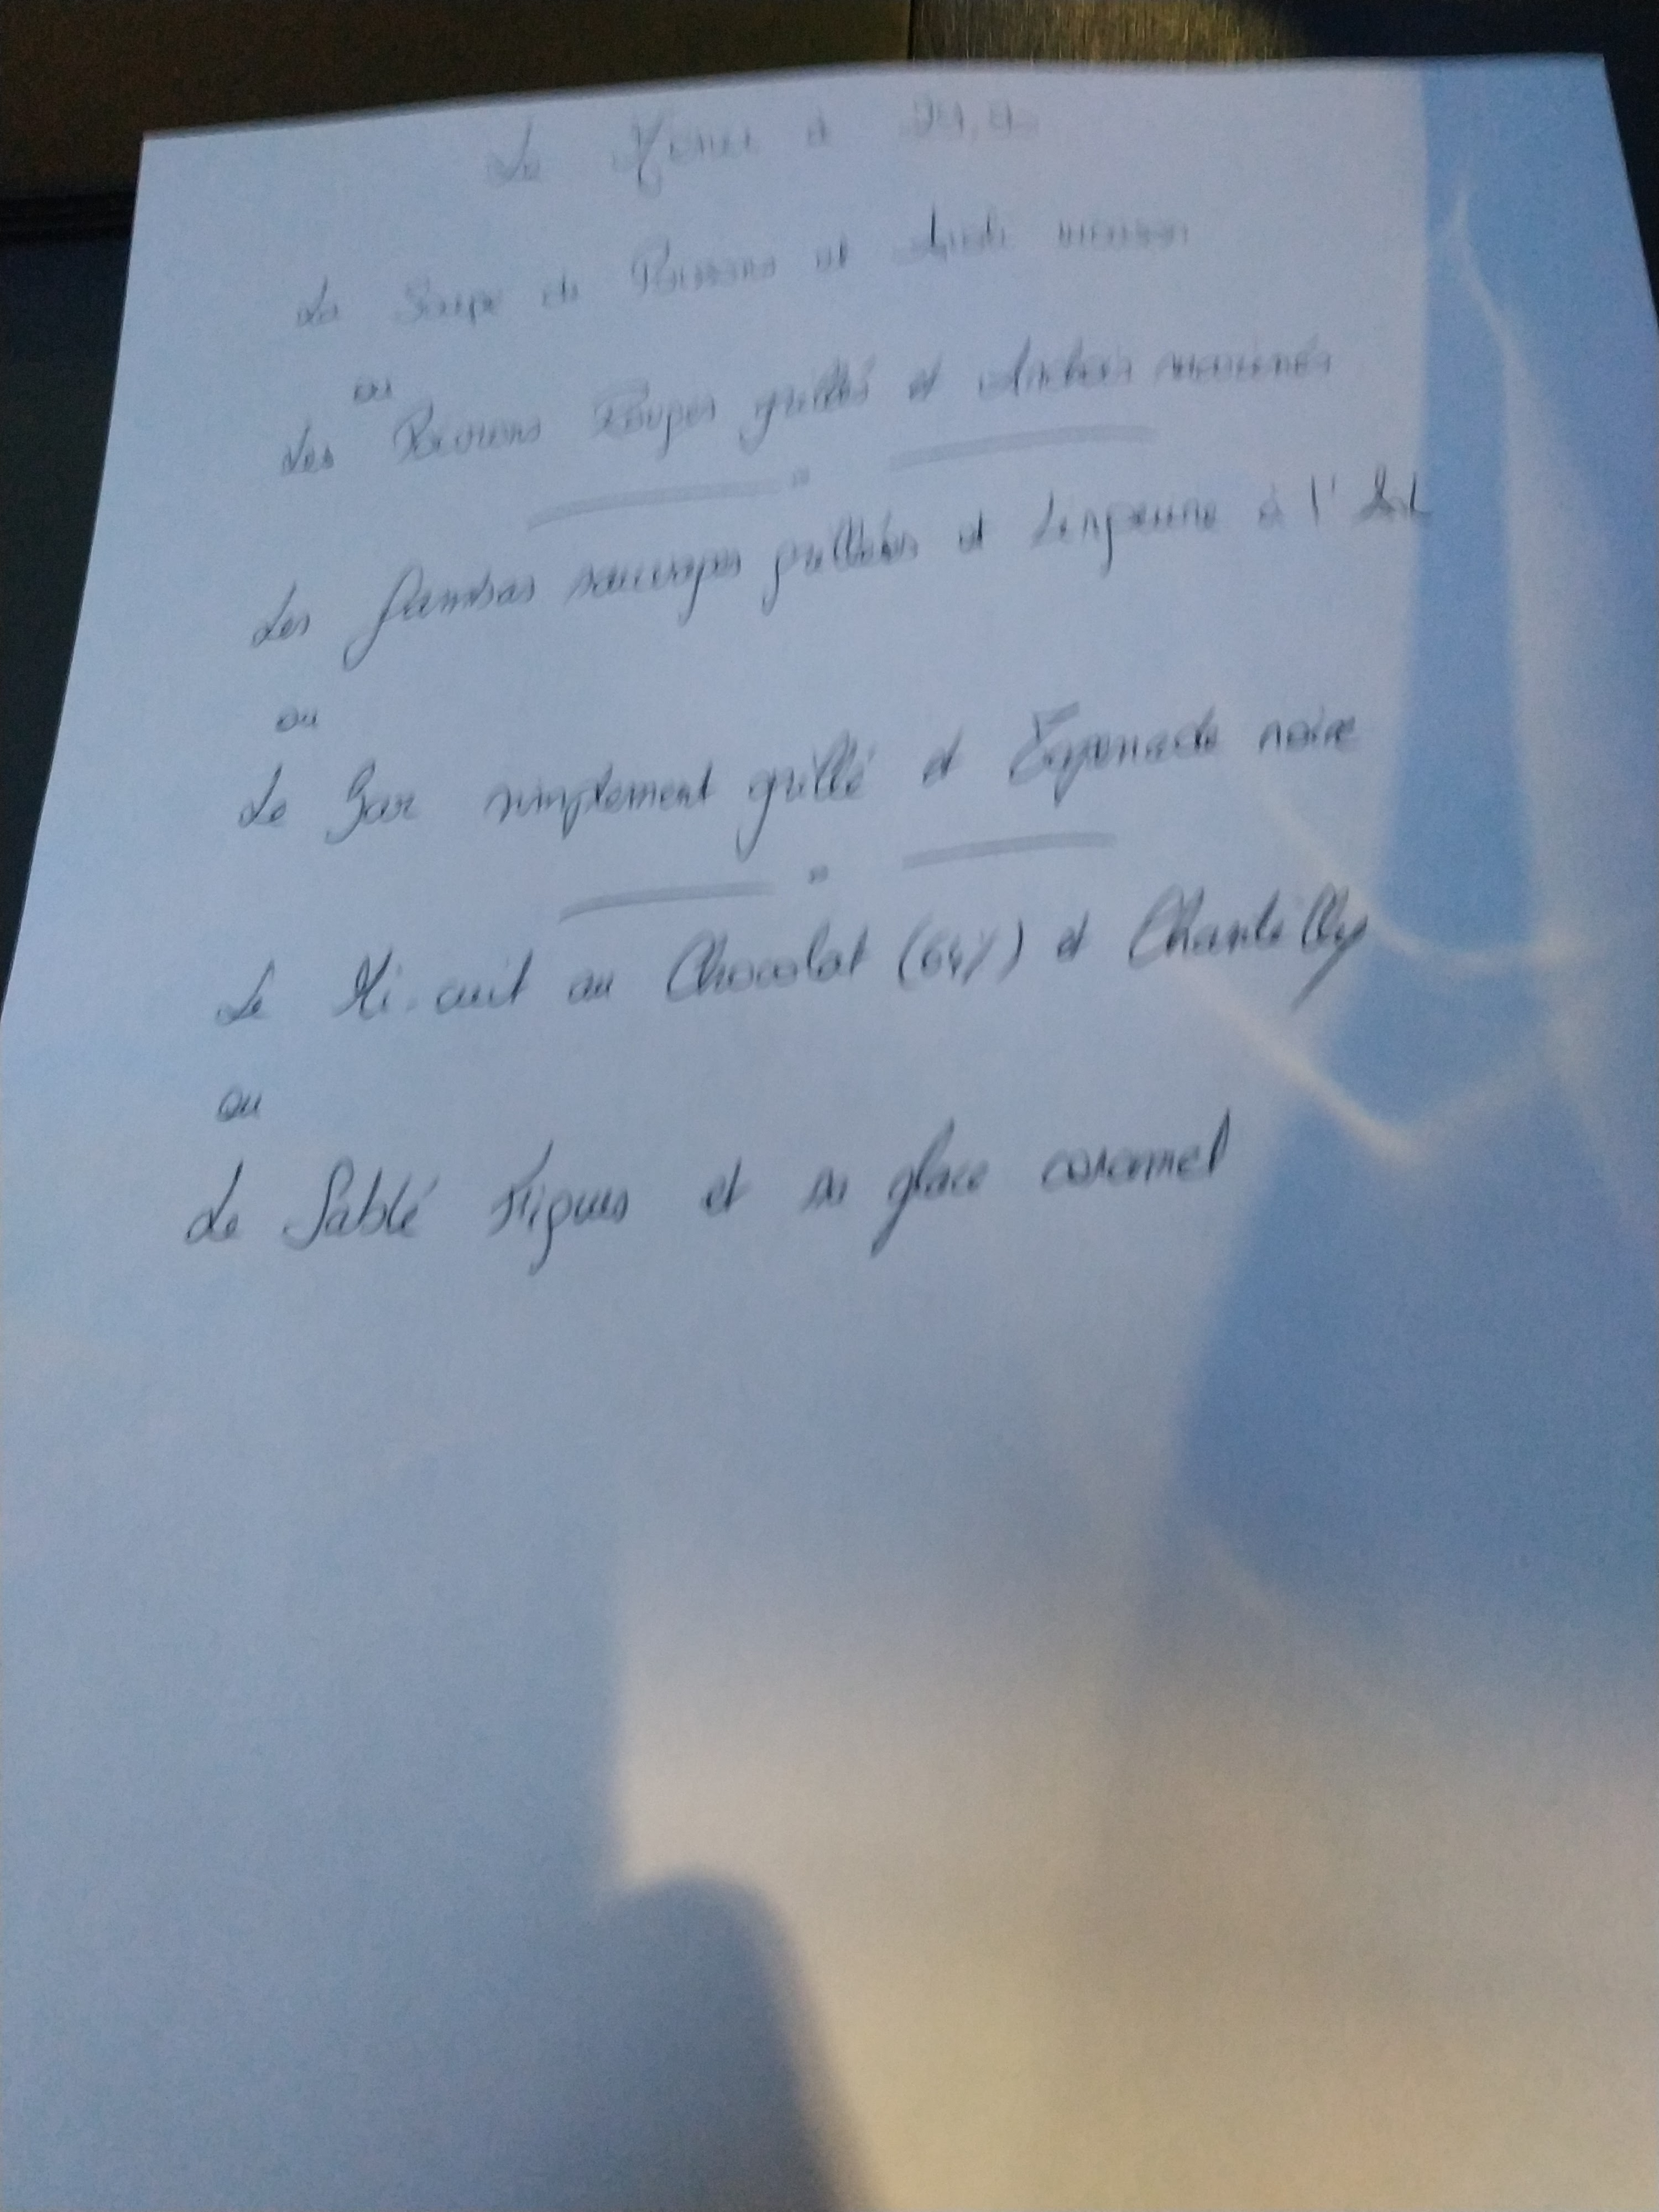 Le Menu à
La Soupe de Poissons et Aïoli maison
ou
Les Poivrons Rouges grillés et Anchois marinés
Les Gambas sauvages grillées et Linguine à l'Ail
ou
Le Bar simplement grillé et Tapenade noire
Le Mi-cuit au Chocolat (64%) et Chantilly
ou
Le Sablé Figues et sa glace caramel